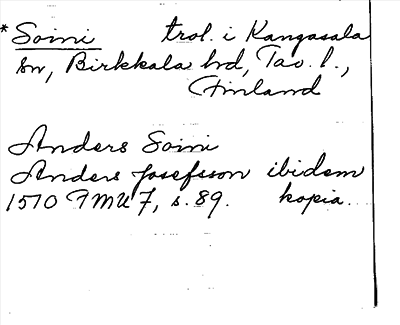 * Soini trol. i Kangasala
sn, Birkkala hd, Tav. l.,
Finland
Anders Soini
Anders Josefsson ibidem
1570 FMU 7, s. 89. kopia.